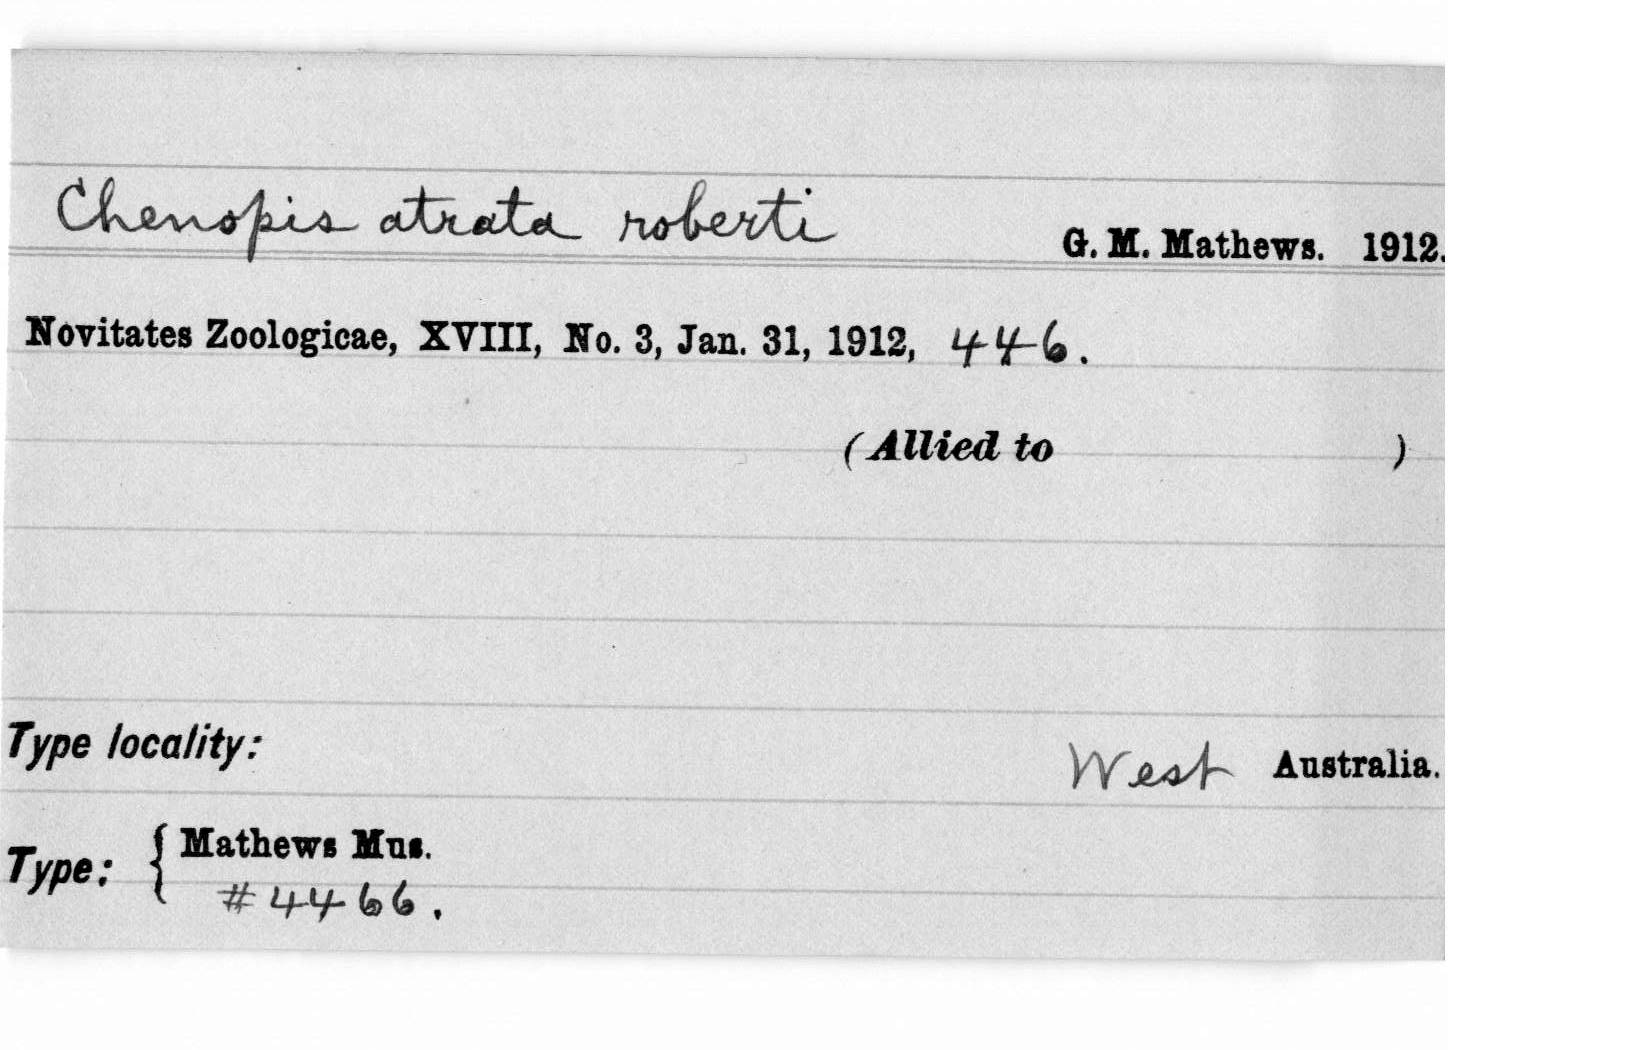 Chenopis atrata roberti G. M. Mathews. 1912.
Novitates Zoologicae, XVIII, No. 3, Jan. 31, 1912, 446.
(Allied to )
Type locality: West Australia.
Type: { Mathews Mus.
#4466.